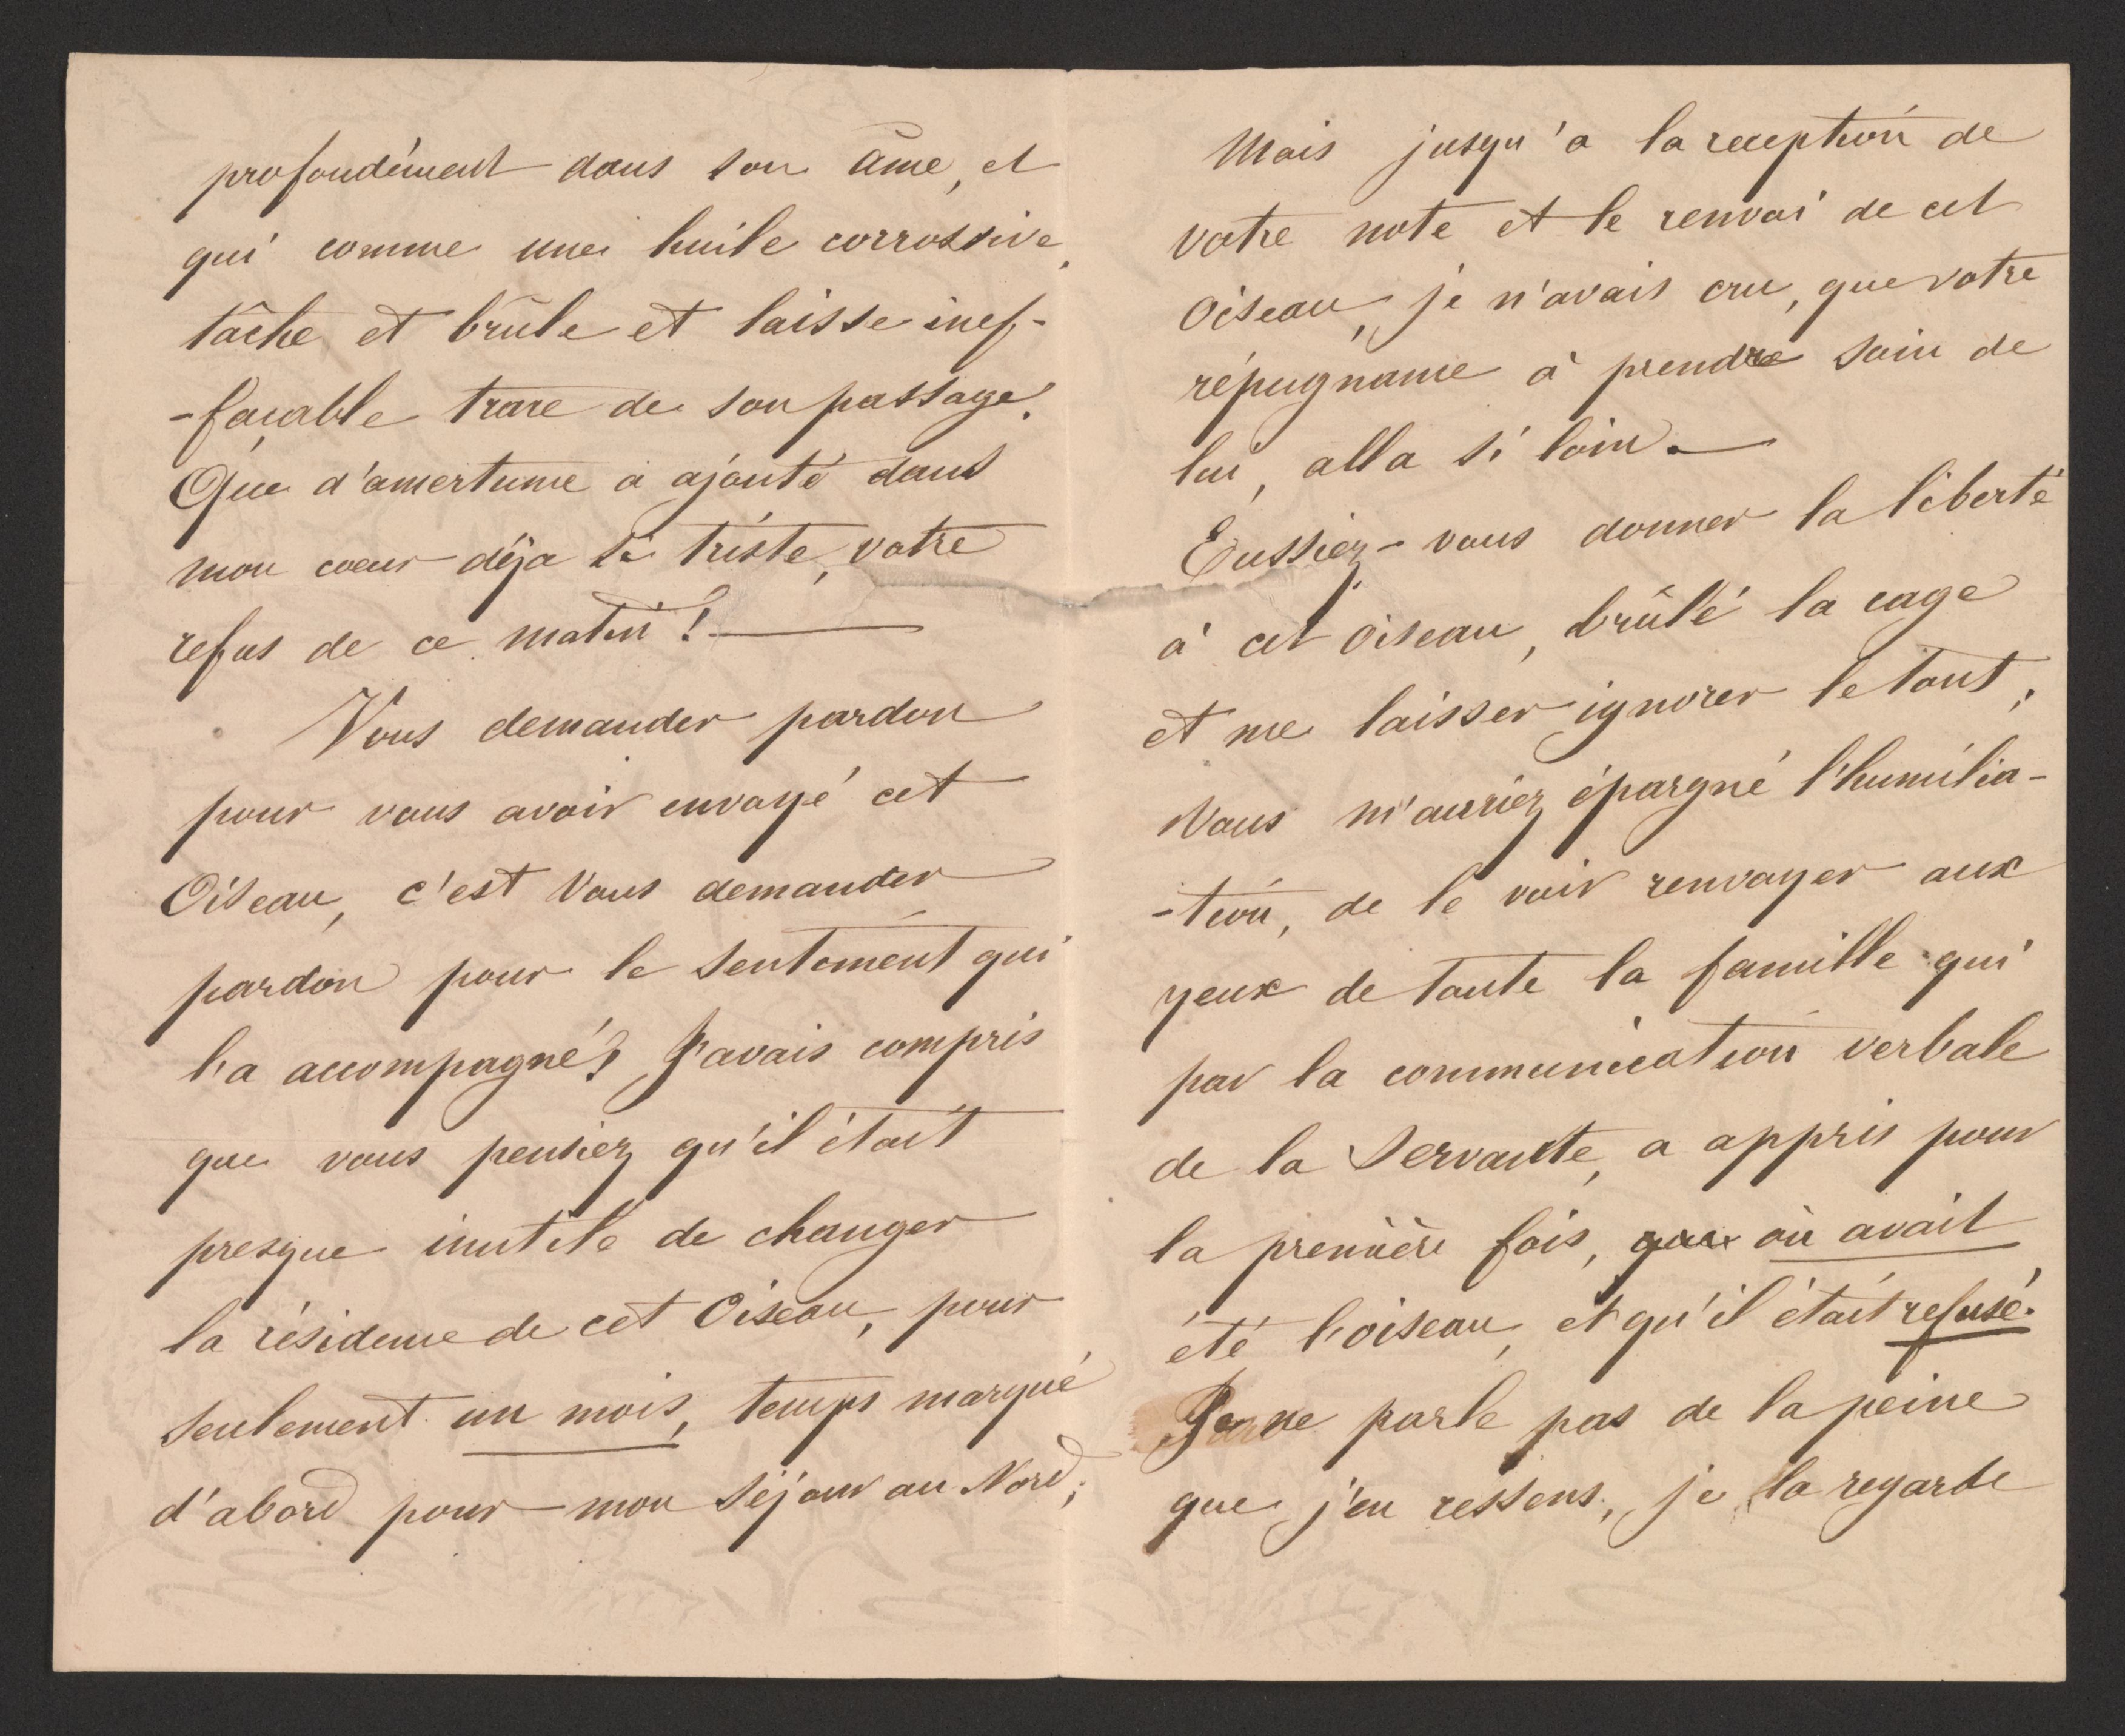 profondément dans son âme, et
qui comme une huile corrossive,
tâche et brûle et laisse inef-
-façable trace de son passage!
Que d'amertume a ajouté dans
mon coeur déja si triste, votre
refus de ce matin! —
Vous demander pardon
pour vous avoir envoyé cet
Oiseau, c'est Vous demander
pardon pour le sentiment qui
l'a accompagné! J'avais compris
que vous pensiez qu'il était
presque inutile de changer
la résidence de cet Oiseau, pour
seulement un mois, temps marqué
d'abord pour mon séjour au Nord;
Mais jusqu'a la reception de
votre note et le renvoi de cet
Oiseau, je n'avais cru, que votre
répugnance à prendre soin de
lui, alla si loin. —
Eussiez-vous donner la liberté
à cet oiseau, brûlé la cage
et me laisser ignorer le tout;
Vous m'auriez épargné l'humilia-
-tion, de le voir renvoyer aux
yeux de toute la famille qui
par la communication verbale
de la Servante, a appris pour
la première fois, que où avait
été l'oiseau, et qu'il était refusé.
Je ne parle pas de la peine
que j'en ressens, je la regarde